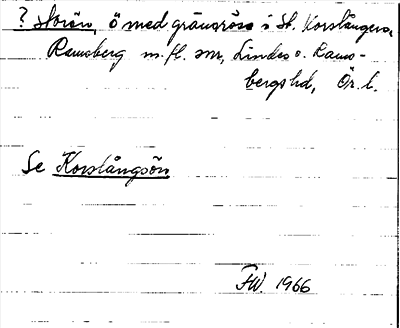 ? Storön, ö med gränsröse i St. Korslången,
Ramsberg m.fl. snr, Lindes o. Rams-
bergs hd, Ör. l.
Se Korslångsön
FW. 1966